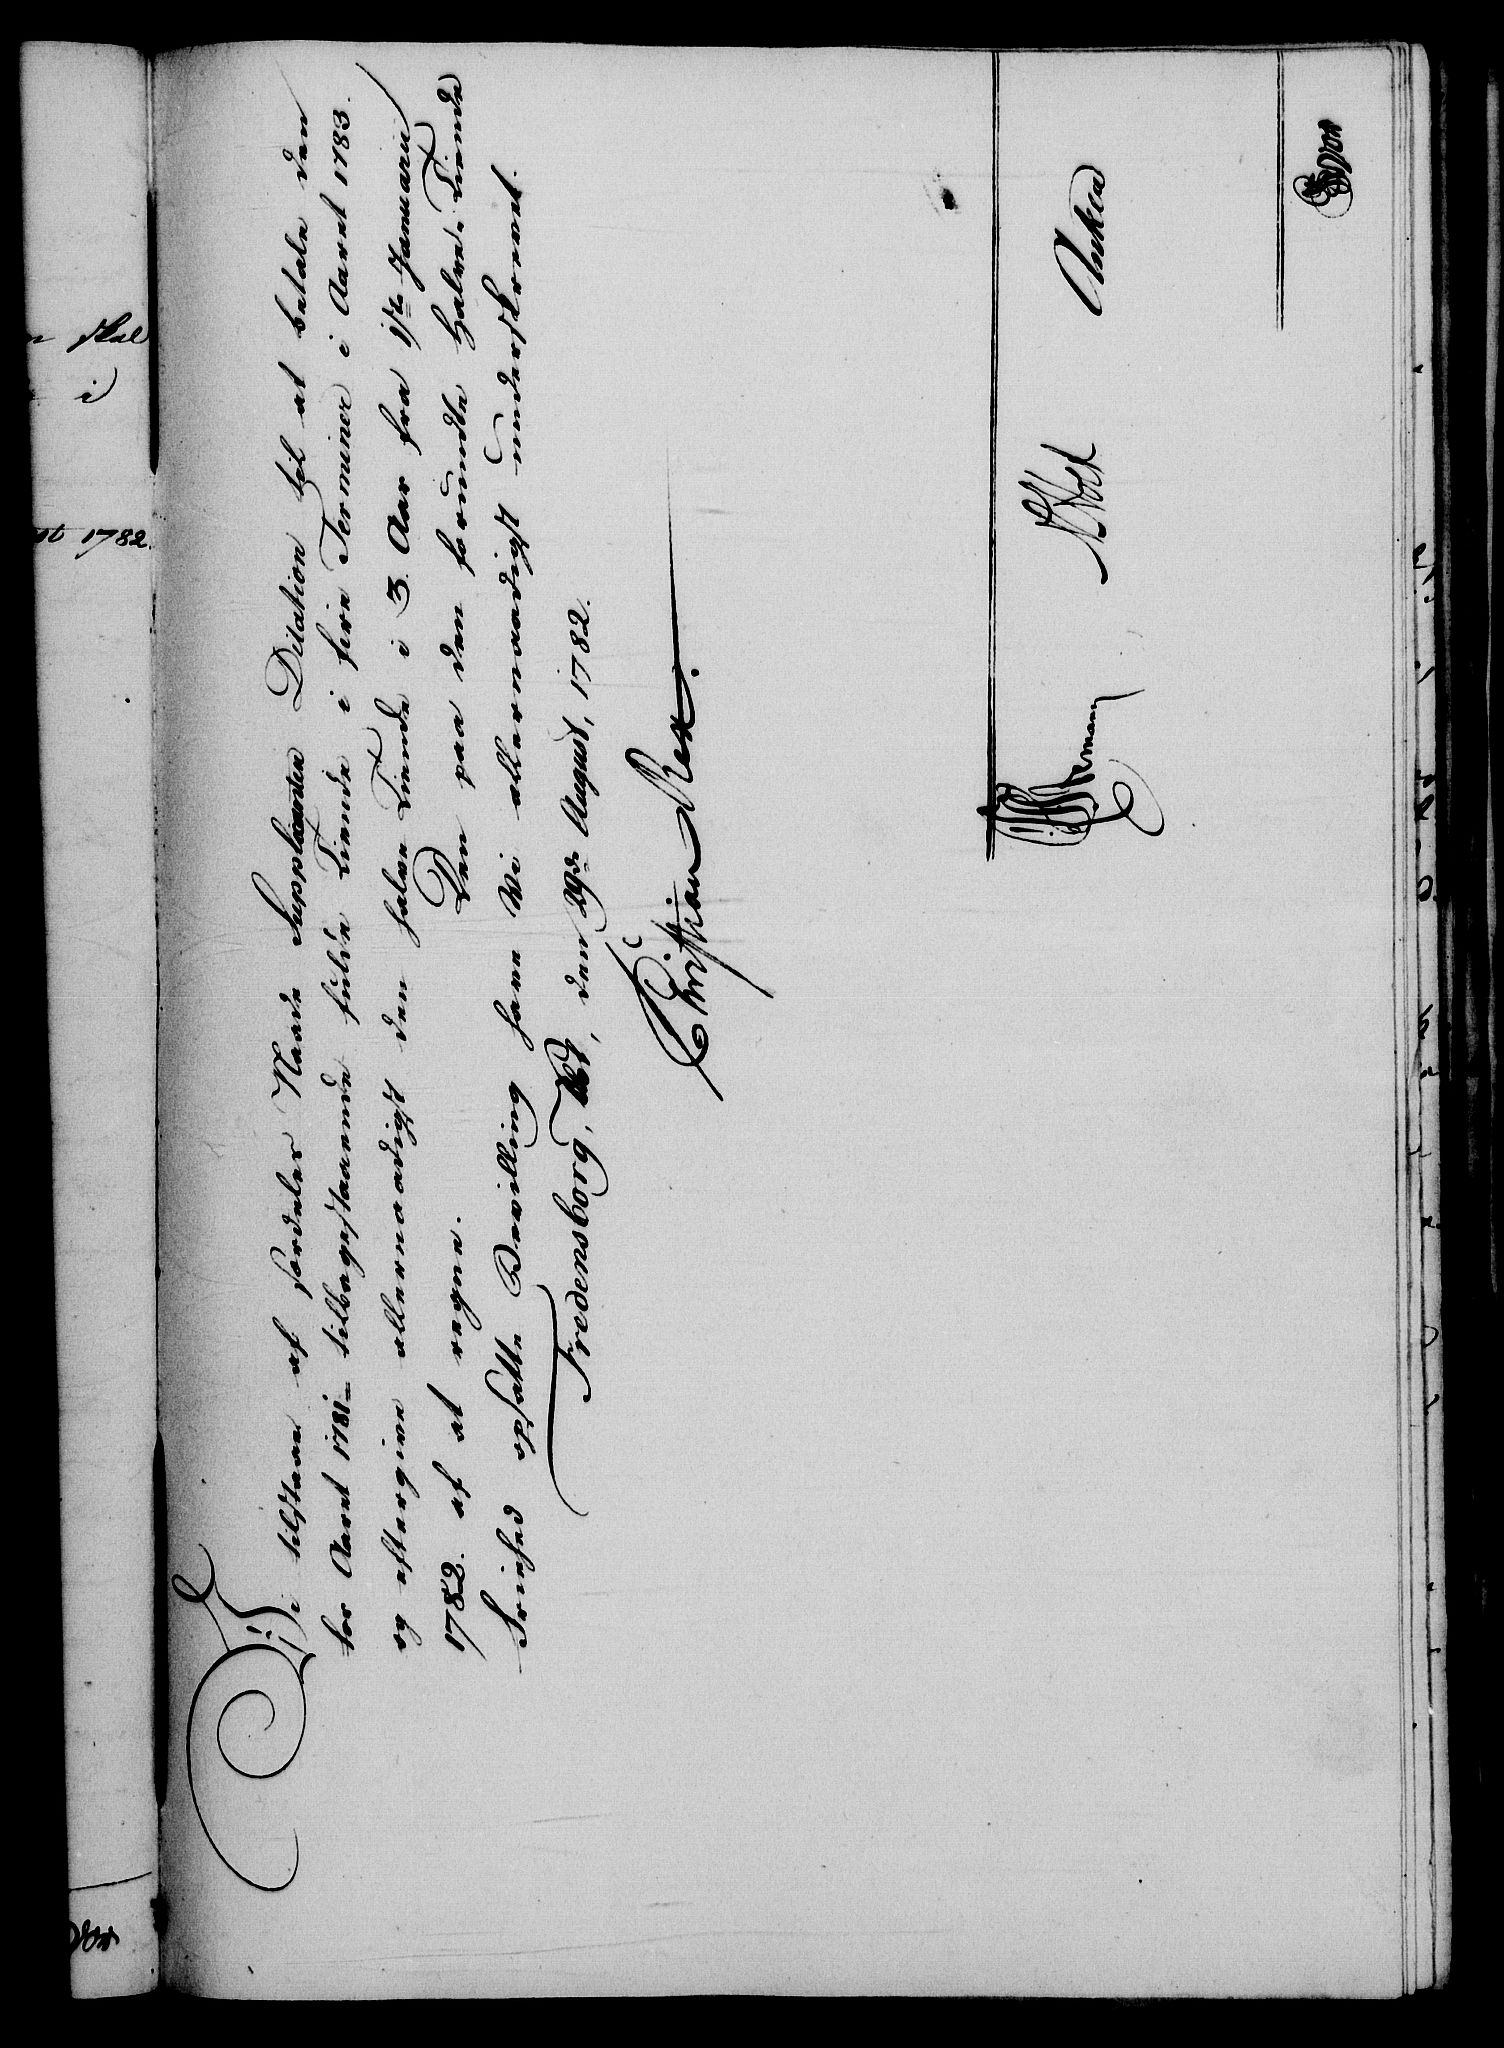 Vi tilstaae af særdeles Naade Supplianten Dilation til at betale den
for Aaret 1781 tilbagestaaende fulde Tiende i fire Terminer i Aaret 1783.
og eftergive allernaadigst den halve Tiende i 3 Aar fra 1ste Januarii
1782. af at regne. Den paa den forundte Halve-Tiende
Friehed opsatte Bevilling have Vi allernaadigst underskrevet.
Fredensborg, den 29de August, 1782.
Christian Rex.
Anker
n skal
i
st 1782.